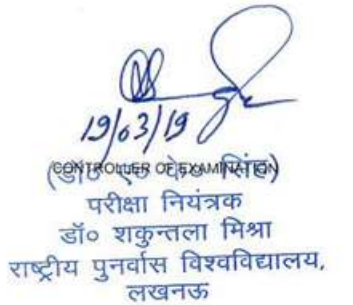 19/03/19
CONTROLLER OF EXAMINATION
(डॉ० ए० के० सिंह)
परीक्षा नियंत्रक
डॉ० शकुन्तला मिश्रा
राष्ट्रीय पुनर्वास विश्वविद्यालय,
लखनऊ